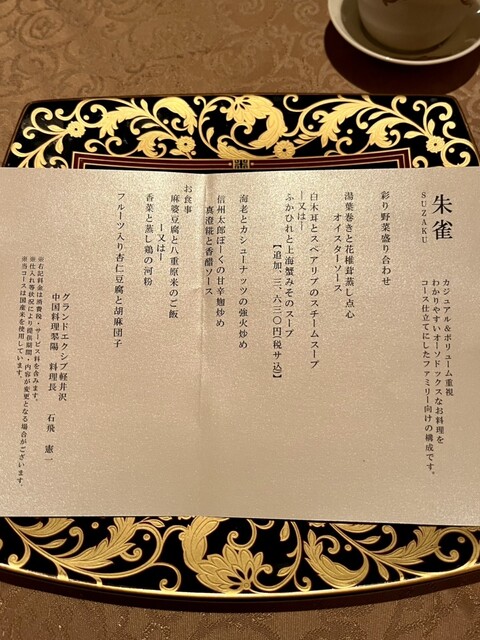 朱雀
SUZAKU
カジュアル&ボリューム重視
わかりやすいオーソドックスなお料理を
コース仕立てにしたファミリー向けの構成です。
彩り野菜盛り合わせ
湯葉巻きと花椎茸蒸し点心
オイスターソース
白木耳とスペアリブのスチームスープ
ー又はー
ふかひれと上海蟹みそのスープ
【追加 三、六三〇円(税サ込)】
海老とカシューナッツの強火炒め
信州太郎ぽーくの甘辛麹炒め
真澄糀と香醋ソース
お食事
麻婆豆腐と八重原米のご飯
ー又はー
香菜と蒸し鶏の河粉
フルーツ入り杏仁豆腐と胡麻団子
グランドエクシブ軽井沢
中国料理翠陽 料理長 石飛 憲一
※右記料金は消費税・サービス料を含みます。
※仕入れ等状況により提供期間・内容が変更となる場合がございます。
※当コースは国産米を使用しています。